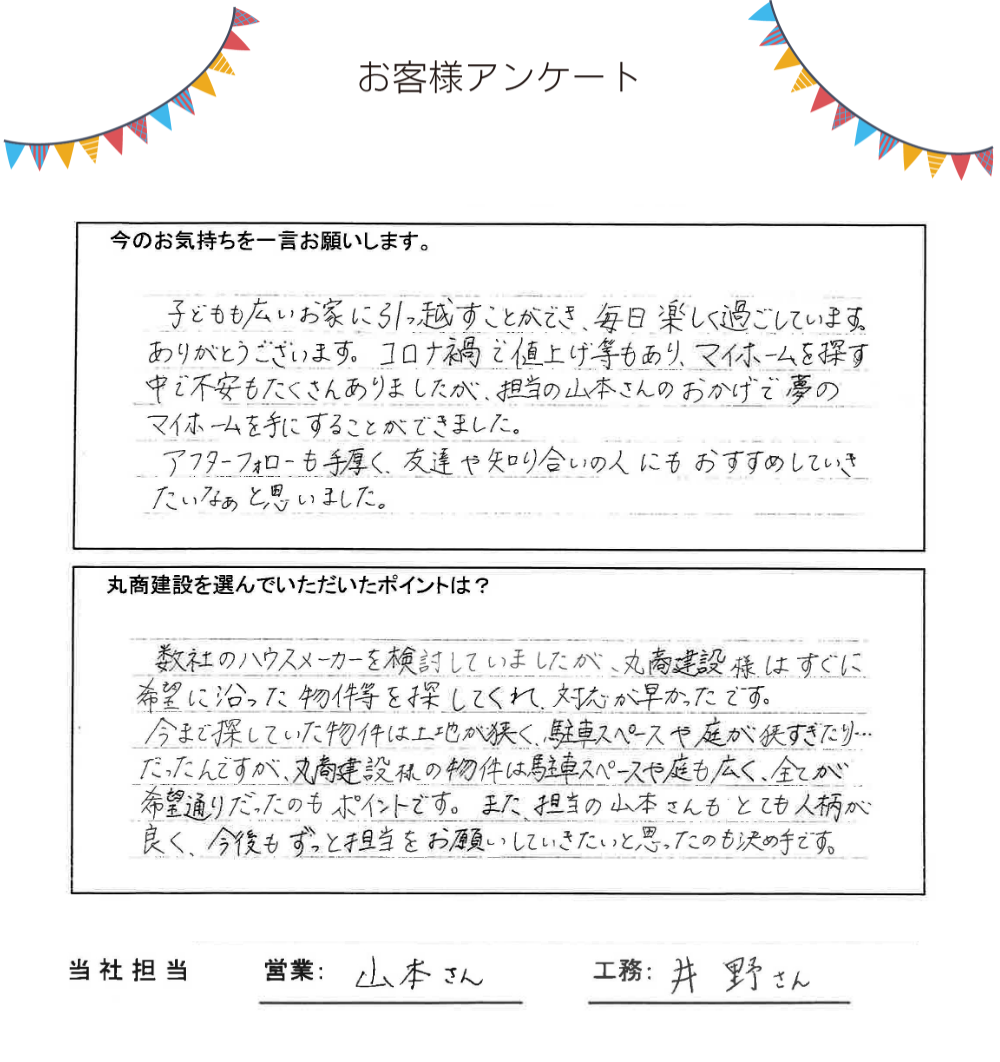 お客様アンケート
今のお気持ちを一言お願いします。
子どもも広いお家に引っ越すことができ、毎日楽しく過ごしています。
ありがとうございます。コロナ禍で値上げ等もあり、マイホームを探す
中で不安もたくさんありましたが、担当の山本さんのおかげで夢の
マイホームを手にすることができました。
アフターフォローも手厚く、友達や知り合いの人にもおすすめしていき
たいなぁと思いました。
丸商建設を選んでいただいたポイントは？
数社のハウスメーカーを検討していましたが、丸商建設様はすぐに
希望に沿った物件等を探してくれ、対応が早かったです。
今まで探していた物件は土地が狭く、駐車スペースや庭が狭すぎたり…
だったんですが、丸商建設様の物件は駐車スペースや庭も広く、全てが
希望通りだったのもポイントです。また、担当の山本さんもとても人柄が
良く、今後もずっと担当をお願いしていきたいと思ったのも決め手です。
当社担当 営業: 山本さん 工務: 井野さん